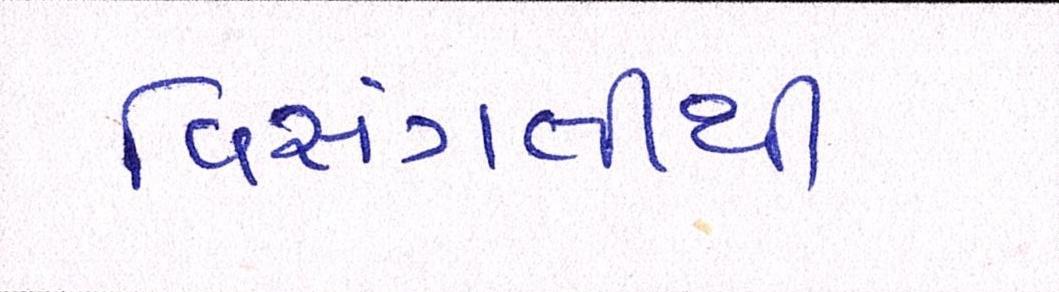 વિસંગતીથી